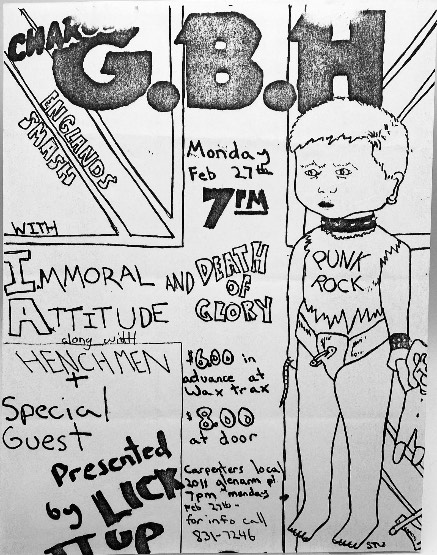 CHARGED
G.B.H
ENGLANDS
SMASH
Monday
Feb 27th
7PM
WITH
IMMORAL
ATTITUDE
AND DEATH
OF
GLORY
along with
HENCHMEN
+
Special
Guest
Presented
by LICK
IT UP
$6.00 in
advance at
Wax trax
$8.00
at door
Carpenters local
2011 glenarm pl
7pm monday
Feb 27th -
for info call
831-7246
PUNK
ROCK
STU